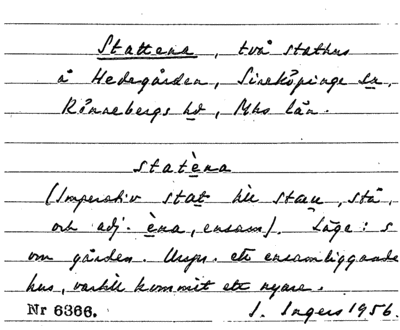 Statena, två stathus
å Hedegården, Sireköpinge sn,
Rönnebergs hd, Mhs län.
statèna
(Imperativ stat till stau, stå,
och adj. èna, ensam). Läge: s
om gården. Urspr. ett ensamliggande
hus, vartill kommit ett nyare.
Nr 6366. I. Ingers 1956.